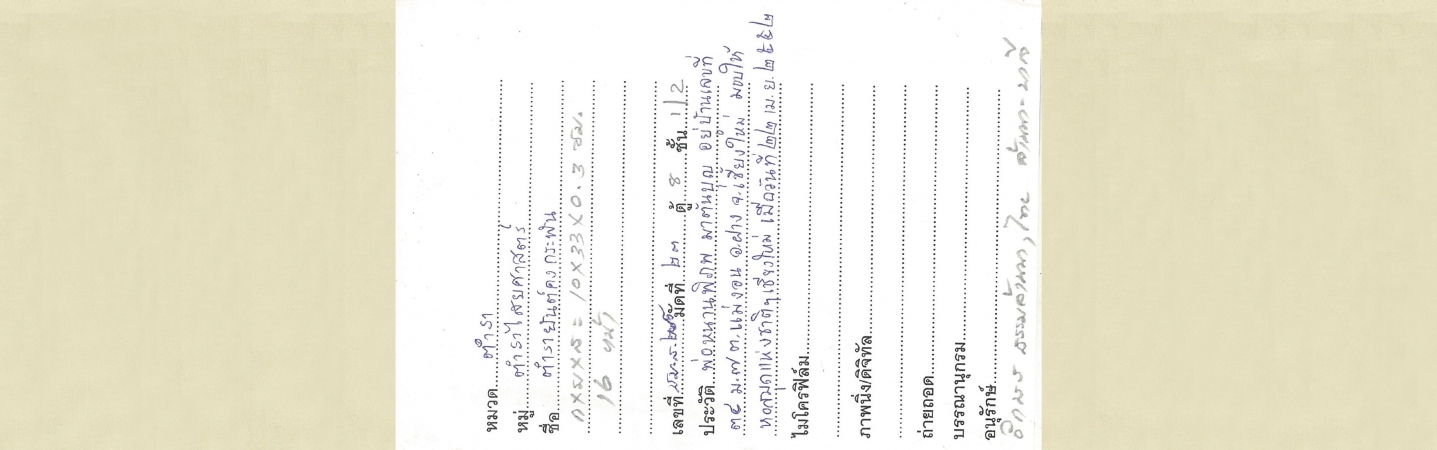 หมวด ตำรา
หมู่ ตำราไสยศาสตร์
ชื่อ ตำรายันต์คงกระพัน
กxยxส = 10x33x0.3 ซม.
16 หน้า
เลขที่ มัดที่ ๒๓ ตู้ ๘ ชั้น 1/2
ประวัติ พ่อหนานพิภพ มาต้นบุญ อยู่บ้านเลขที่
๓๔ ม.๗ ต.แม่งอน อ.ฝาง จ.เชียงใหม่ มอบให้
หอสมุดแห่งชาติฯเชียงใหม่ เมื่อวันที่ ๒๒ เม.ย. ๒๕๕๒
ไมโครฟิล์ม
ภาพนิ่ง/ดิจิทัล
ถ่ายถอด
บรรณานุกรม
อนุรักษ์
อักษร ธรรมล้านนา, ไทย ล้านนา - บาลี